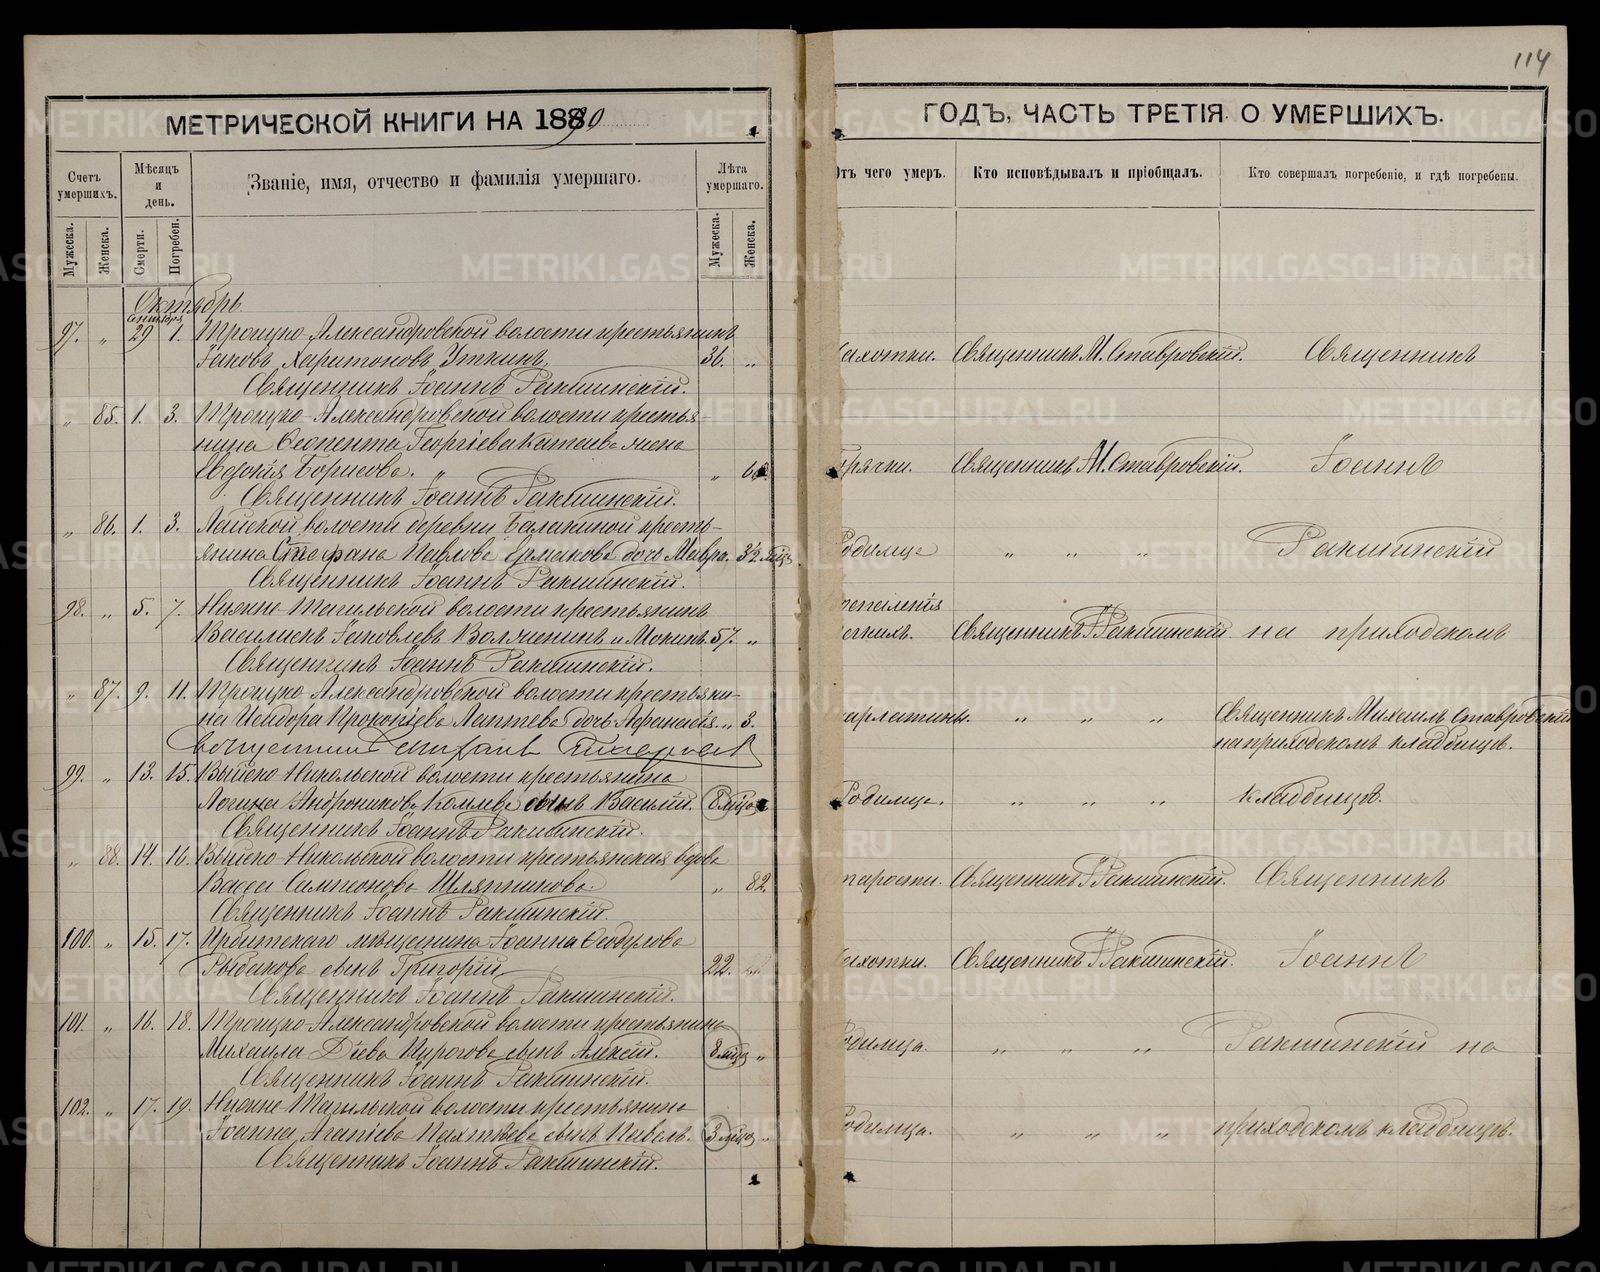 114
МЕТРИЧЕСКОЙ КНИГИ НА 1890
ГОДЪ, ЧАСТЬ ТРЕТІЯ О УМЕРШИХЪ.
Счетъ умершихъ.
Мѣсяцъ и день.
Званіе, имя, отчество и фамилія умершаго.
Лѣта умершаго.
Отъ чего умеръ.
Кто исповѣдывалъ и пріобщалъ.
Кто совершалъ погребеніе, и гдѣ погребены.
Мужеска.
Женска.
Смерти.
Погребен.
Мужеска.
Женска.
Октябрь
97. „ 29 1. Троицко-Александровской волости крестьянинъ
Іаковъ Харитоновъ Уткинъ 36. „ чахотки. Священникъ М. Ставровскій. Священникъ
Священникъ Іоаннъ Ракшинскій.
„ 85. 1. 3. Троицко-Александровской волости крестья-
нина Георгіева жена
Евдокія Борисова. „ горячки. Священникъ М. Ставровскій. Іоаннъ
Священникъ Іоаннъ Ракшинскій.
„ 86. 1. 3. Лайской волости деревни Балакиной кресть-
янина Стефана Павлова Ермакова дочь Мавра. родимца „ „ „ Ракшинскій
Священникъ Іоаннъ Ракшинскій.
98. „ 5. 7. Нижне-Тагильской волости крестьянинъ воспаленія
Василискъ Іаковлевъ и Мокинъ. 57. „ легкихъ. Священникъ І. Ракшинскій на приходскомъ
Священникъ Іоаннъ Ракшинскій.
„ 87. 9. 11. Троицко-Александровской волости крестьяни-
на Исидора Прокопіева Лаптева дочь Афанасія. „ 3. скарлатины. „ „ „ Священникъ Михаилъ Ставровскій
на приходскомъ кладбищѣ.
Священникъ Михаилъ Ставровскій
99. „ 13. 15. Выйско-Никольской волости крестьянина
Логина Андроникова Комлева сынъ Василій. 8 мѣсц. родимца. „ „ „ кладбищѣ.
Священникъ Іоаннъ Ракшинскій.
„ 88. 14. 16. Выйско-Никольской волости крестьянская вдова
Васса Сампсонова Шляпникова. „ 82. старости. Священникъ І. Ракшинскій. Священникъ
Священникъ Іоаннъ Ракшинскій.
100. „ 15. 17. Ирбитскаго мѣщанина Іоанна Ѳеодулова
Рыбакова сынъ Григорій 22. чахотки. Священникъ І. Ракшинскій. Іоаннъ
Священникъ Іоаннъ Ракшинскій.
101. „ 16. 18. Троицко-Александровской волости крестьянина
Михаила Діева Пирогова сынъ Алексій. 8 мѣсц „ родимца. „ „ „ Ракшинскій на
Священникъ Іоаннъ Ракшинскій.
102. „ 17. 19. Нижне-Тагильской волости крестьянина
Іоанна Агапіева Пахтѣева сынъ Павелъ. 3 мѣсц „ родимца. „ „ „ приходскомъ кладбищѣ.
Священникъ Іоаннъ Ракшинскій.
METRIKI.GASO-URAL.RU